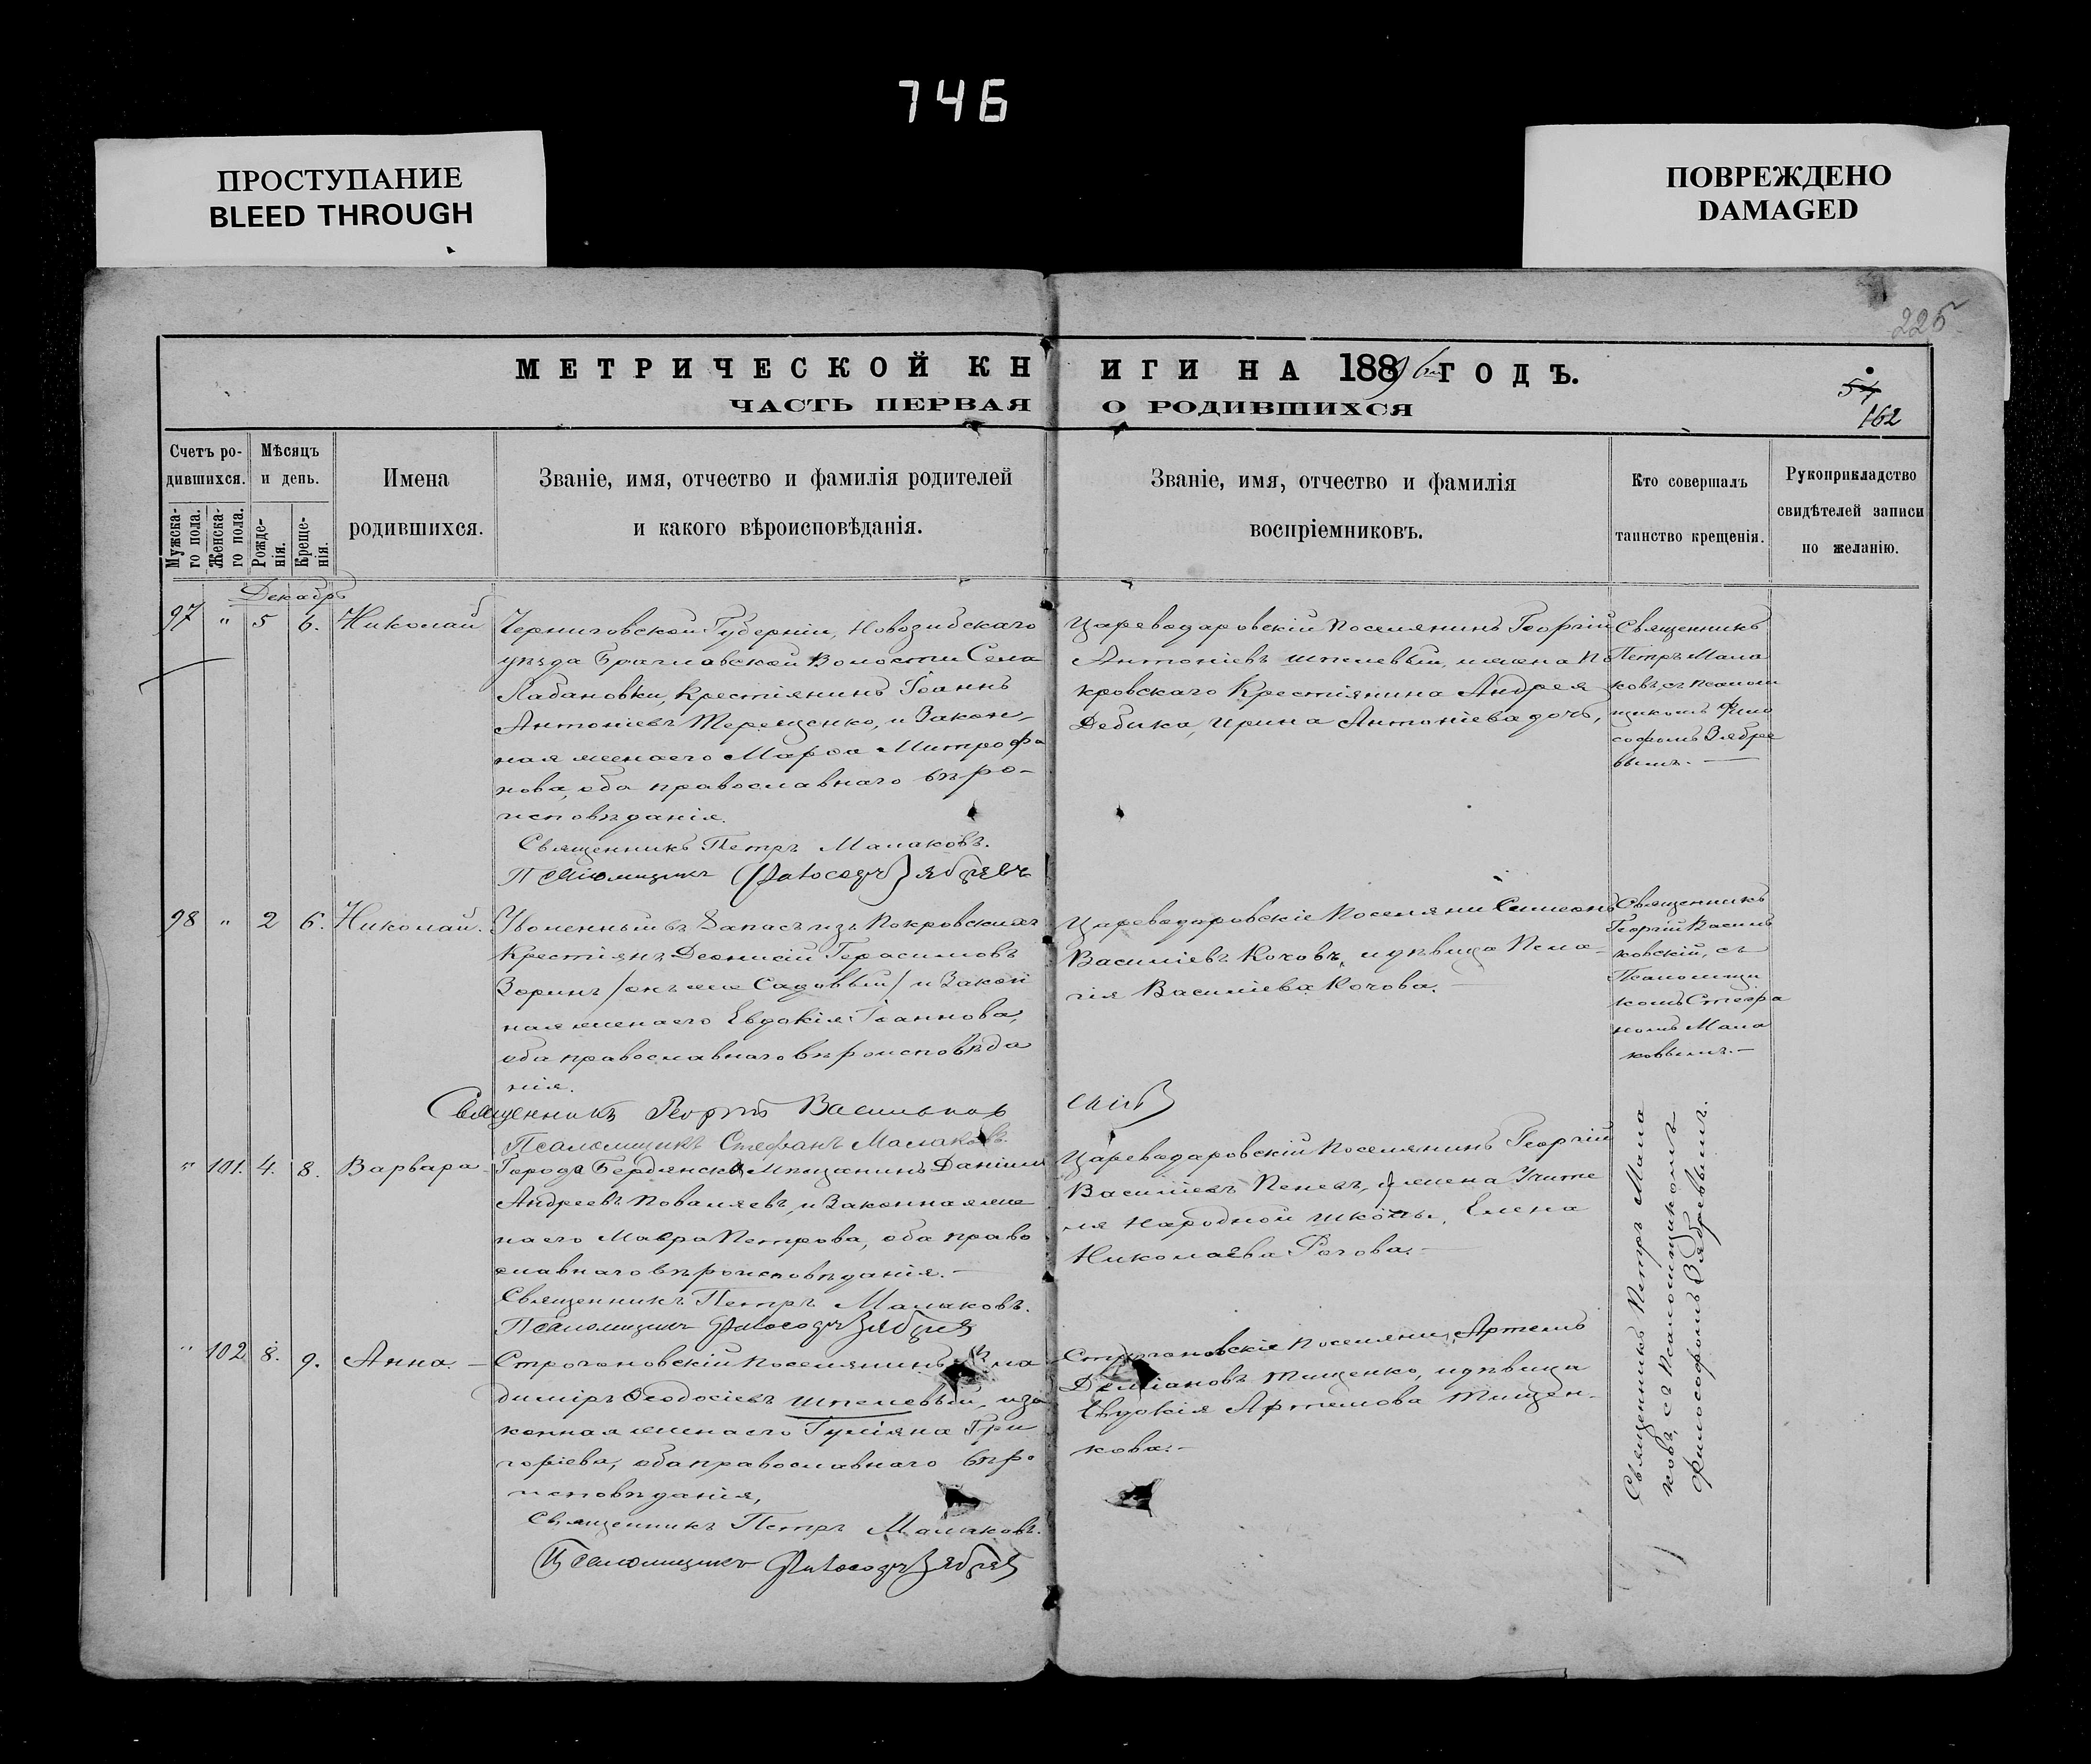 746
ПРОСТУПАНИЕ
BLEED THROUGH
ПОВРЕЖДЕНО
DAMAGED
225
МЕТРИЧЕСКОЙ КНИГИ НА 1889 ГОДЪ.
ЧАСТЬ ПЕРВАЯ О РОДИВШИХСЯ
54
162
Счетъ ро-
дившихся.
Мужска-
го пола.
Женска-
го пола.
Мѣсяцъ
и день.
Рожде-
нія.
Креще-
нія.
Имена
родившихся.
Званіе, имя, отчество и фамилія родителей
и какого вѣроисповѣданія.
Званіе, имя, отчество и фамилія
воспріемниковъ.
Кто совершалъ
таинство крещенія.
Рукоприкладство
свидѣтелей записи
по желанію.
Декабрь
97 " 5 6. Николай
Черниговской Губерніи, Новозибскаго
уѣзда Брахловской Волости Села
Лабановки, Крестіянинъ Іоаннъ
Антоніевъ Терещенко, и Закон-
ная жена его Марѳа Митрофа
нова, оба православнаго вѣро-
исповѣданія.
Священникъ Петръ Малаковъ.
Псаломщикъ Философъ Зябревъ
Цареводаровскій Поселянинъ Георгій
Антоніевъ Шпилевый, и жена По
кровскаго Крестіянина Андрея
Дебика, Ирина Антоніева дочь,
Священникъ
Петръ Мала
ковъ, съ псалом
щикомъ Фило
софомъ Зябре
вымъ.
98 " 2 6. Николай.
Уволенный въ Запасъ изъ Покровскихъ
Крестіянъ Діонисій Герасимовъ
Зоринъ /онъ же Садовый/ и Закон
ная жена его Евдокія Іоаннова,
оба православнаго вѣроисповѣда
нія.
Священникъ Георгій Васильков
скій
Псаломщикъ Стефанъ Малаковъ.
Цареводаровскіе Поселяни Симеонъ
Василіевъ Кочовъ, и дѣвица Пела-
гія Василіева Кочова.
Священникъ
Георгій Василь
ковскій, съ
Псаломщи
комъ Стефа
номъ Мала
ковымъ.
" 101. 4. 8. Варвара
Города Бердянска Мѣщанинъ Даніилъ
Андреевъ Поваляевъ, и Законная же
на его Мавра Петрова, оба право
славнаго вѣроисповѣданія.
Священникъ Петръ Малаковъ.
Псаломщикъ Философъ Зябрев
Цареводаровскій Поселянинъ Георгій
Василіевъ Пеневъ, и жена Учите
ля Народной Школы, Елена
Николаева Рогова.
" 102 8. 9. Анна.
Строгоновскій Поселянинъ Вла
диміръ Ѳеодосіевъ Шпилевый, и за
конная жена его Гуліяна Гри
горіева, оба православнаго вѣро
исповѣданія,
Священникъ Петръ Малаковъ.
Псаломщикъ Философъ Зябрев
Строгановскіе Поселяни, Артемъ
Деміановъ Тищенко, и дѣвица
Евдокія Артемова Тищен-
кова.
Священникъ Петръ Мала
ковъ, съ Псаломщикомъ
Философомъ Зябревымъ.